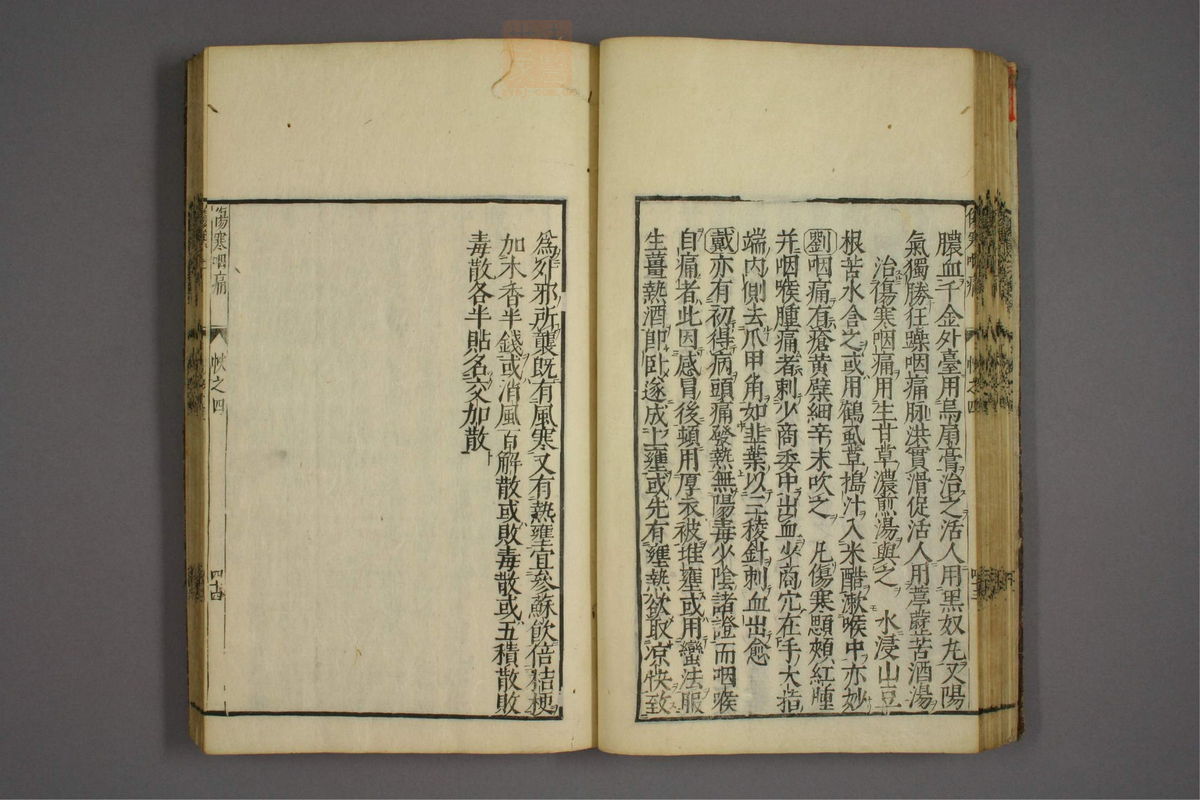 傷寒咽痛
帙之四
膿血千金外臺用烏扇膏治之活人用黑奴丸又陽
氣獨勝狂躁咽痛脉洪實滑促活人用葶藶苦酒湯
治傷寒咽痛用生甘草濃煎湯與之　水浸山豆
根苦水含之或用鶴虱草搗汁入米醋漱喉中亦妙
劉咽痛有瘡黃蘗細辛末吹之　凡傷寒顋頰紅腫
并咽喉腫痛者刺少商委中出血少商穴在手大指
端内側去爪甲角如韭葉以三稜針刺血出愈
戴亦有初得病頭痛發熱無陽毒少陰諸證而咽喉
自痛者此因感冒後頓用厚衣被堆壅或用蠻法服
生薑熱酒即卧遂成上壅或先有壅熱欲取凉快致
為外邪所襲既有風寒又有熱壅宜參蘇飲倍桔梗
加木香半錢或消風百解散或敗毒散或五積散敗
毒散各半貼名交加散
傷寒咽痛
帙之四
四十四